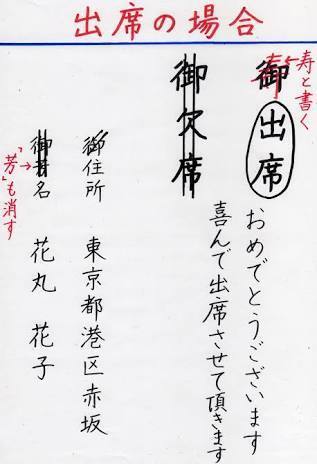 出席の場合
寿と書く
御出席
おめでとうございます
喜んで出席させて頂きます
御欠席
御住所 東京都港区赤坂
御芳名 花丸 花子
「芳」も消す